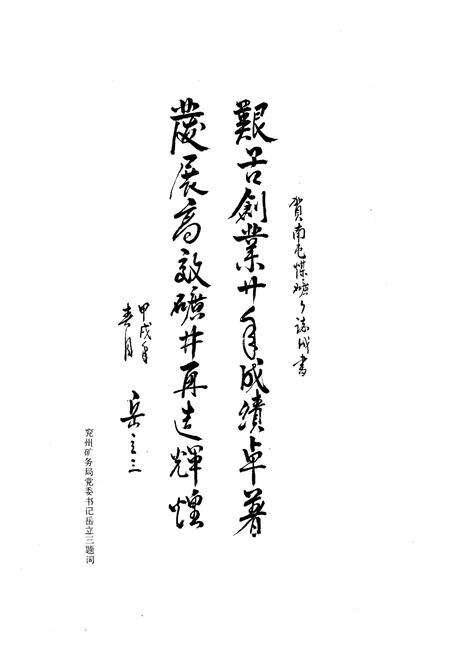 贺南屯煤矿矿志成书
艱苦創業廿年成績卓著
發展高效礦井再造輝煌
甲戌年
春月
岳立三
兖州矿务局党委书记岳立三题词